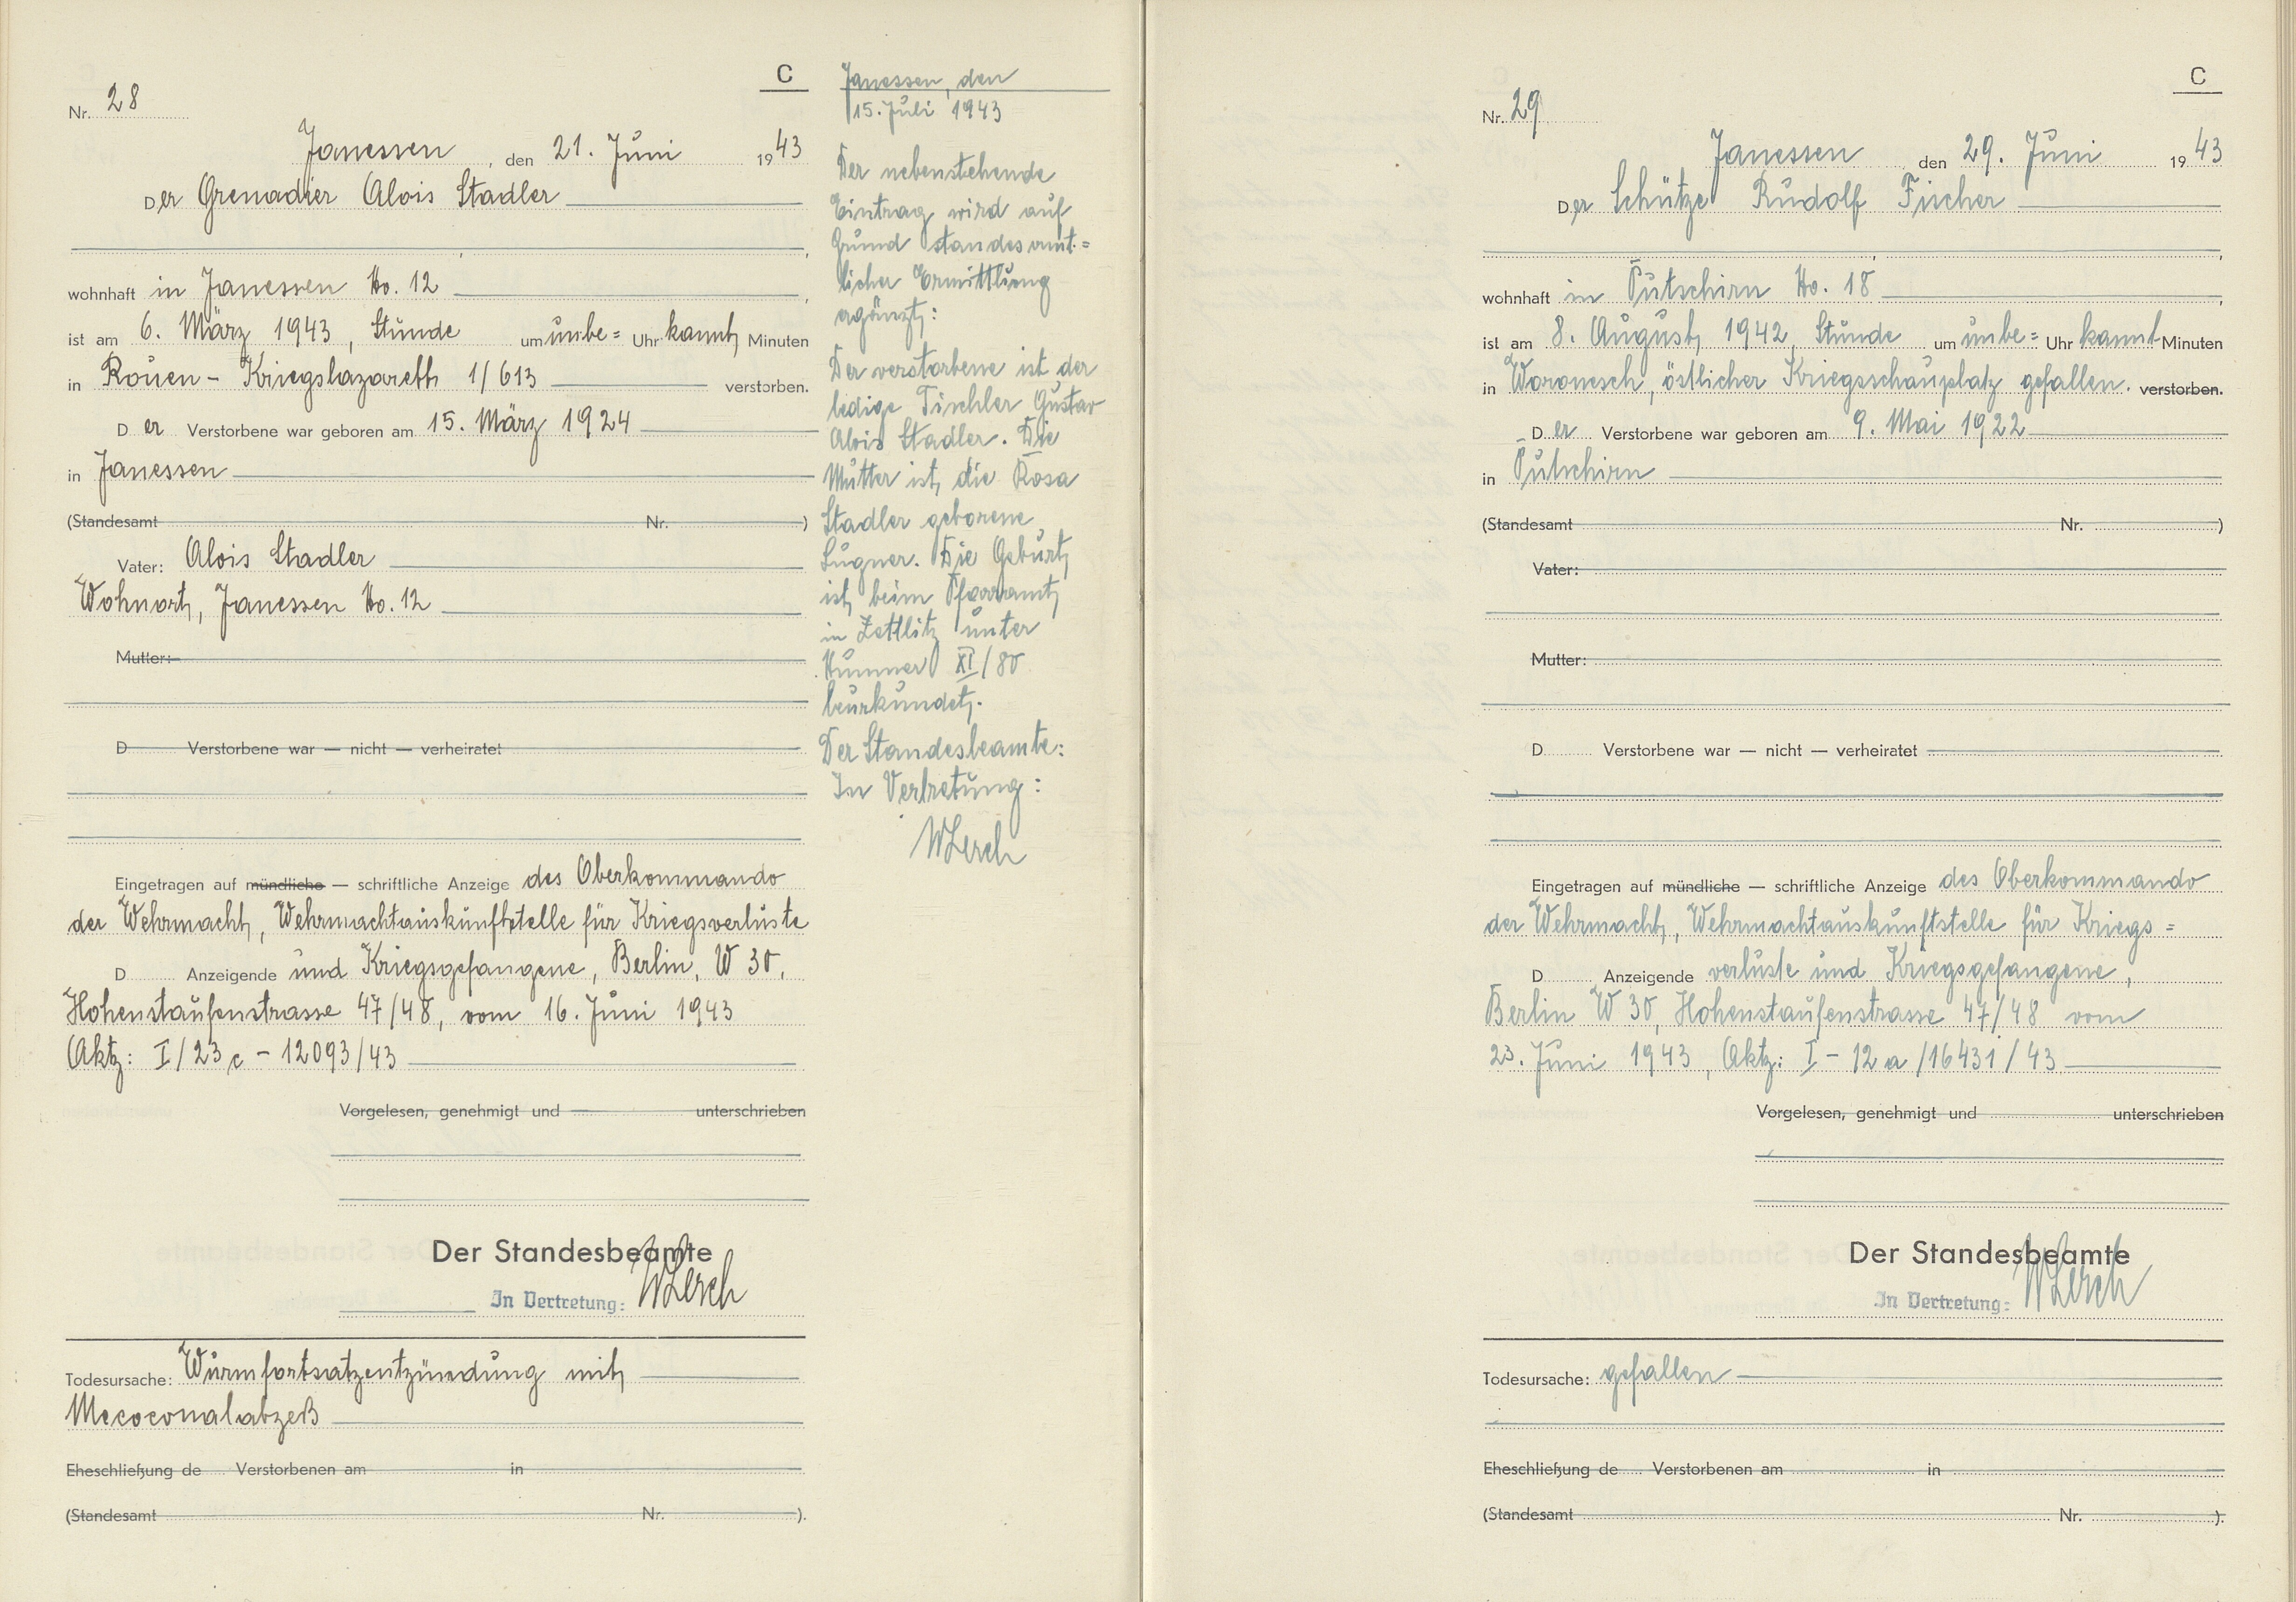 C
Nr. 28
Janessen, den 21. Juni 1943
Der Grenadier Alois Stadler
wohnhaft in Janessen No. 12
ist am 6. März 1943, Stunde um unbe= Uhr kannt Minuten
in Rouen - Kriegslazarett 1/613 verstorben.
Der Verstorbene war geboren am 15. März 1924
in Janessen
(Standesamt Nr. )
Vater: Alois Stadler
Wohnort, Janessen No. 12
Mutter:
D Verstorbene war — nicht — verheiratet
Eingetragen auf mündliche — schriftliche Anzeige des Oberkommando
der Wehrmacht, Wehrmachtauskunftstelle für Kriegsverluste
D Anzeigende und Kriegsgefangene, Berlin, W 30,
Hohenstaufenstrasse 47/48, vom 16. Juni 1943
Aktz: I/23 c - 12093/43
Vorgelesen, genehmigt und unterschrieben
Der Standesbeamte
In Vertretung: WLerch
Todesursache: Wurmfortsatzentzündung mit
Mecoconalabzeß
Eheschließung de Verstorbenen am in
(Standesamt Nr. ).
Janessen, den
15. Juli 1943
Der nebenstehende
Eintrag wird auf
Grund standesamt=
licher Ermittlung
agänzt:
Der verstorbene ist der
ledige Tischler Gustav
Alois Stadler. Die
Mutter ist die Rosa
Stadler geborene
Lugner. Die Geburt
ist beim Pfarramt
in Zettlitz unter
Nummer XI/80
beurkundet.
Der Standesbeamte:
In Vertretung:
WLerch
C
Nr. 29
Janessen, den 29. Juni 1943
Der Schütze Rudolf Fischer
wohnhaft in Putschirn No. 18
ist am 8. August 1942, Stunde um unbe= Uhr kannt Minuten
in Woronesch, östlicher Kriegsschauplatz gefallen. verstorben.
Der Verstorbene war geboren am 9. Mai 1922
in Putschirn
(Standesamt Nr. )
Vater:
Mutter:
D Verstorbene war — nicht — verheiratet
Eingetragen auf mündliche — schriftliche Anzeige des Oberkommando
der Wehrmacht, Wehrmachtauskunftstelle für Kriegs=
D Anzeigende verluste und Kriegsgefangene,
Berlin W 30, Hohenstaufenstrasse 47/48 vom
23. Juni 1943, Aktz: I - 12 a /16431/43
Vorgelesen, genehmigt und unterschrieben
Der Standesbeamte
In Vertretung: WLerch
Todesursache: gefallen
Eheschließung de Verstorbenen am in
(Standesamt Nr. ).